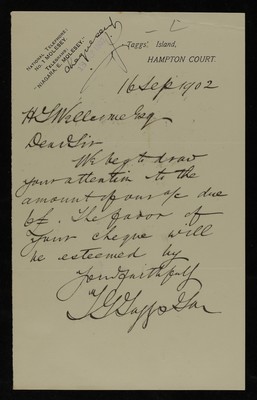 NATIONAL TELEPHONE:
No. 1 MOLESEY.
TELEGRAMS:
"NIAGARA, E. MOLESEY."
Taggs' Island,
HAMPTON COURT.
16 Sep 1902
H S Wellcome Esq
Dear Sir
We beg to draw
your attention to the
amount of our a/c due
The favor of
your cheque will
be esteemed by
Yours faithfully
Tagg & Son